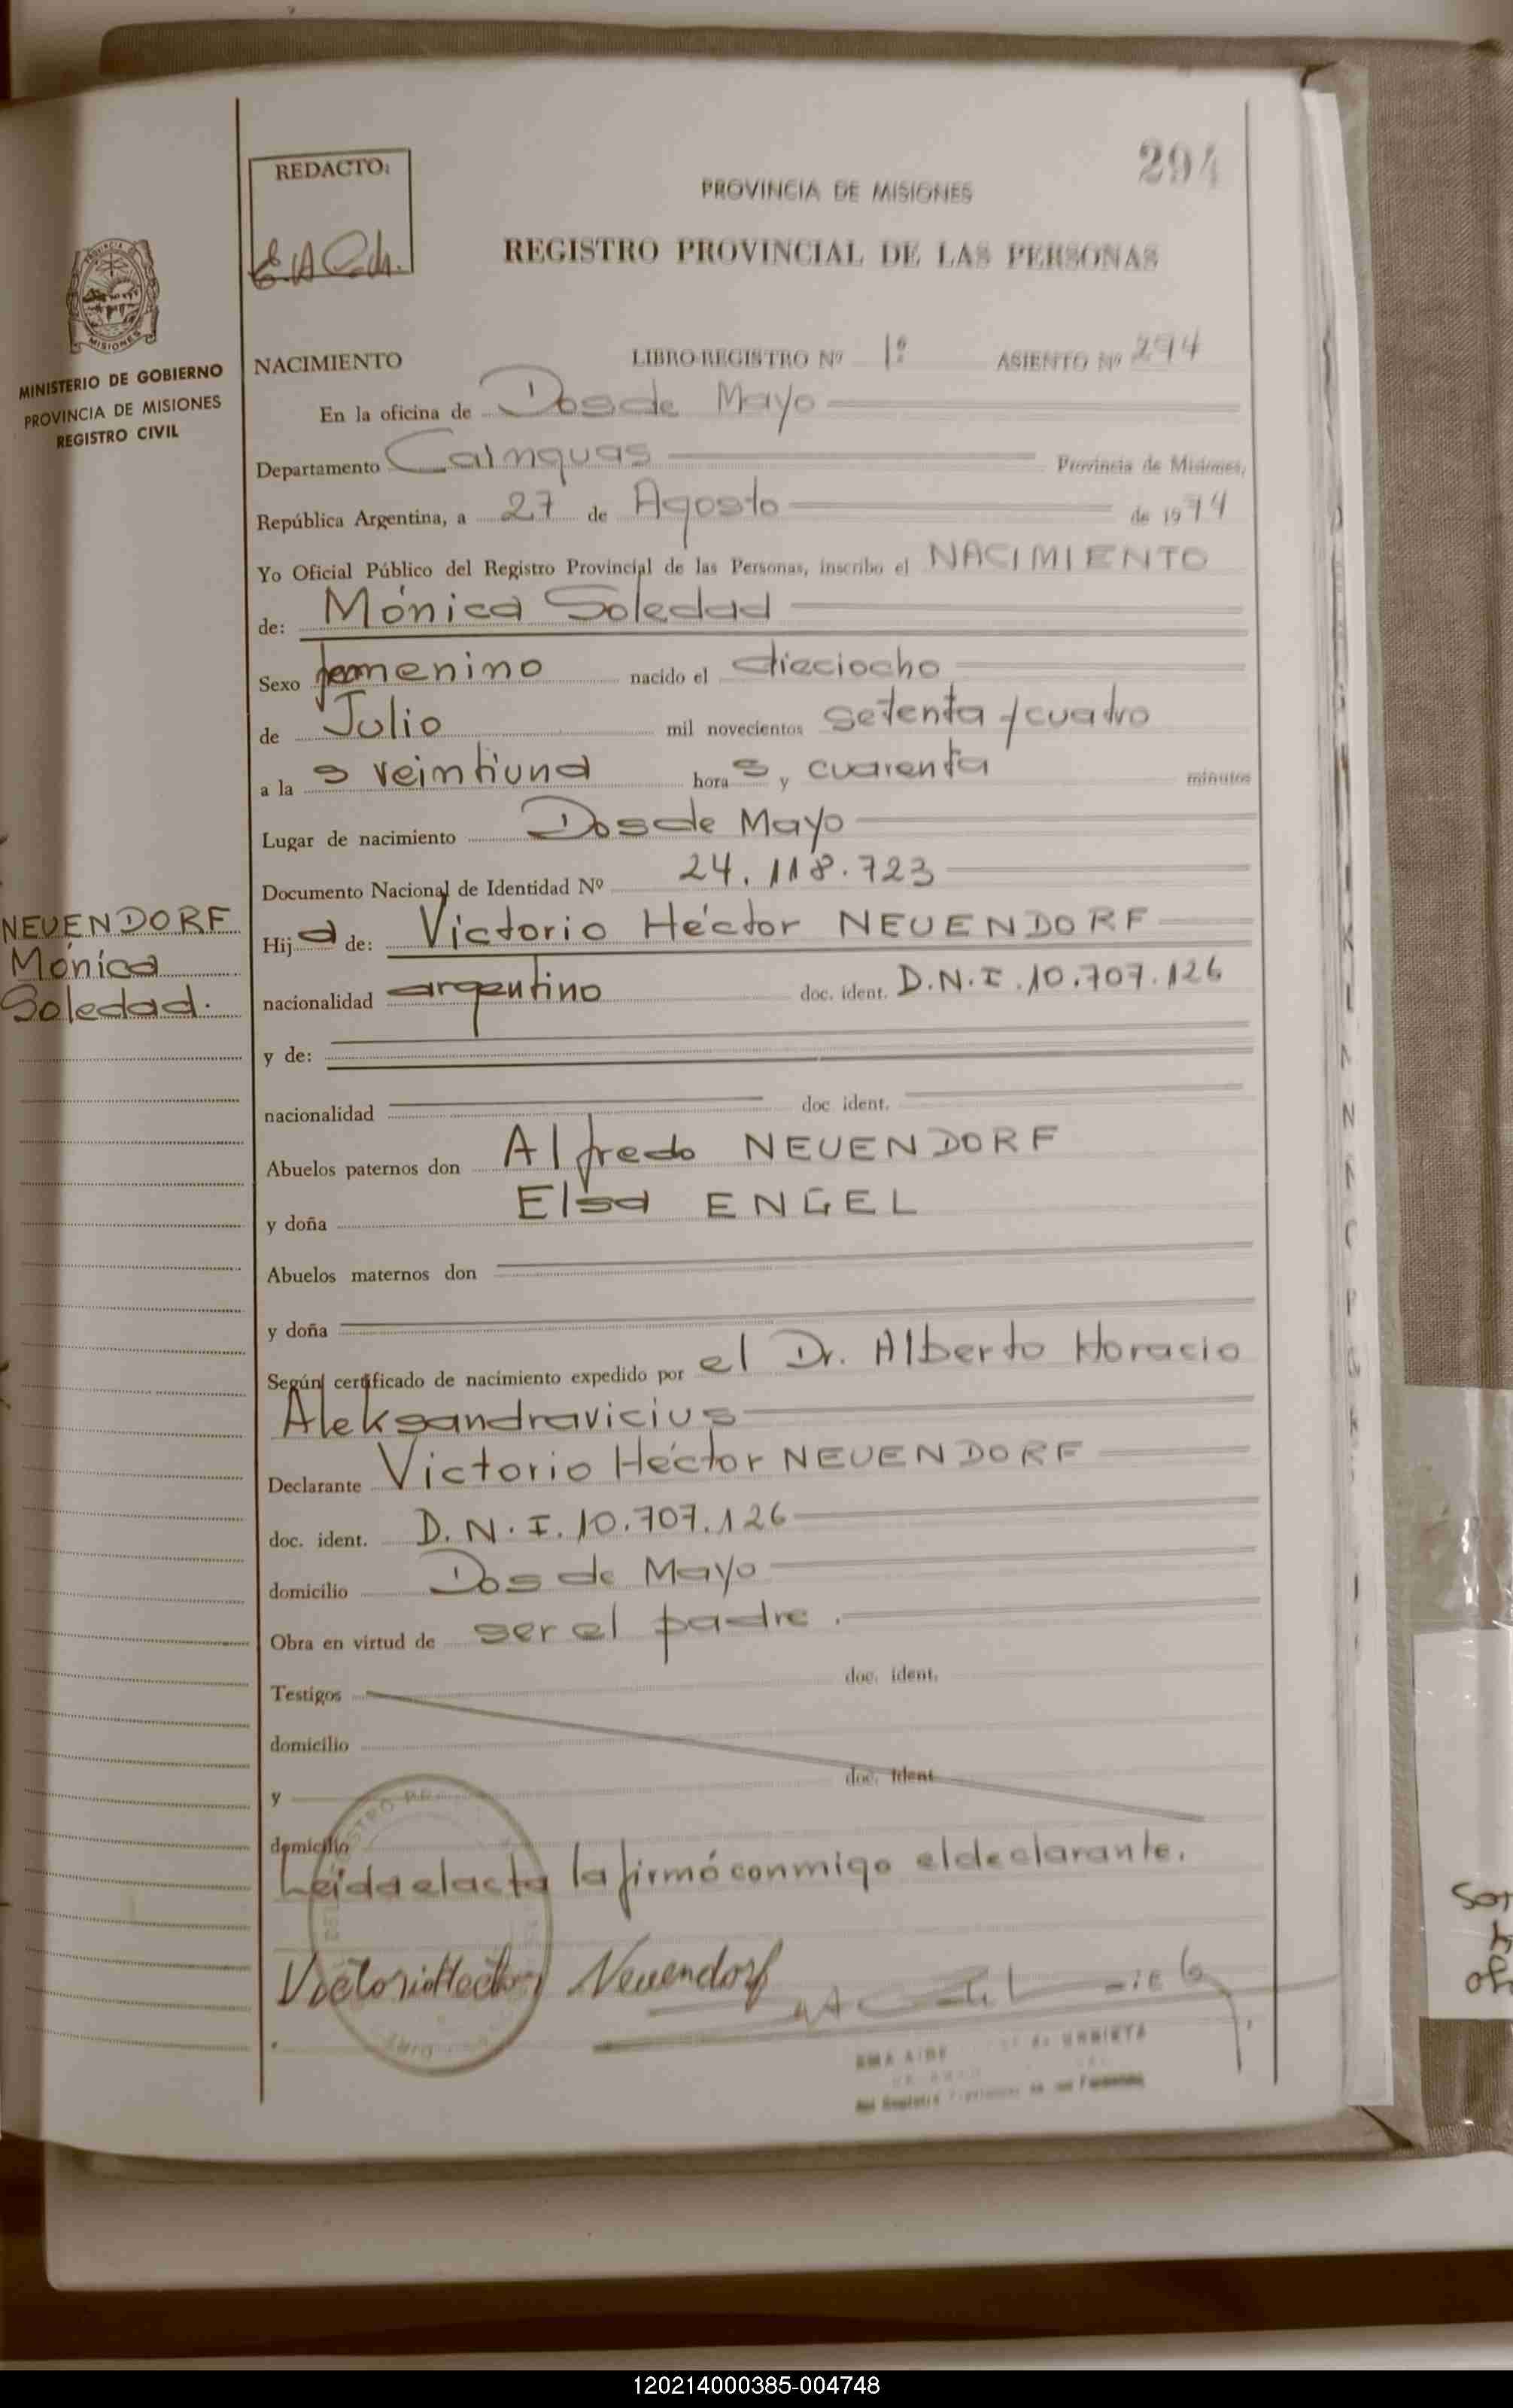 294
REDACTO:
E.A.Ch.
PROVINCIA DE MISIONES
REGISTRO PROVINCIAL DE LAS PERSONAS
MISIONES
MINISTERIO DE GOBIERNO
PROVINCIA DE MISIONES
REGISTRO CIVIL
NACIMIENTO LIBRO-REGISTRO Nº 1º ASIENTO Nº 294
En la oficina de Dos de Mayo
Departamento Cainguas Provincia de Misiones,
República Argentina, a 27 de Agosto de 1974
Yo Oficial Público del Registro Provincial de las Personas, inscribo el NACIMIENTO
de: Mónica Soledad
Sexo femenino nacido el dieciocho
de Julio mil novecientos setenta y cuatro
a la s veintiuna hora s y cuarenta minutos
Lugar de nacimiento Dos de Mayo
Documento Nacional de Identidad Nº 24.118.723
NEUENDORF
Mónica
Soledad.
Hij a de: Victorio Héctor NEUENDORF
nacionalidad argentino doc. ident. D.N.I. 10.707.126
y de:
nacionalidad doc. ident.
Abuelos paternos don Alfredo NEUENDORF
y doña Elsa ENGEL
Abuelos maternos don
y doña
Según certificado de nacimiento expedido por el Dr. Alberto Horacio
Aleksandravicius
Declarante Victorio Héctor NEUENDORF
doc. ident. D.N.I. 10.707.126
domicilio Dos de Mayo
Obra en virtud de ser el padre.
Testigos doc. ident.
domicilio
y doc. ident.
domicilio
Leída el acta la firmó conmigo el declarante.
Victorio Hector Neuendorf
URRIETA
120214000385-004748